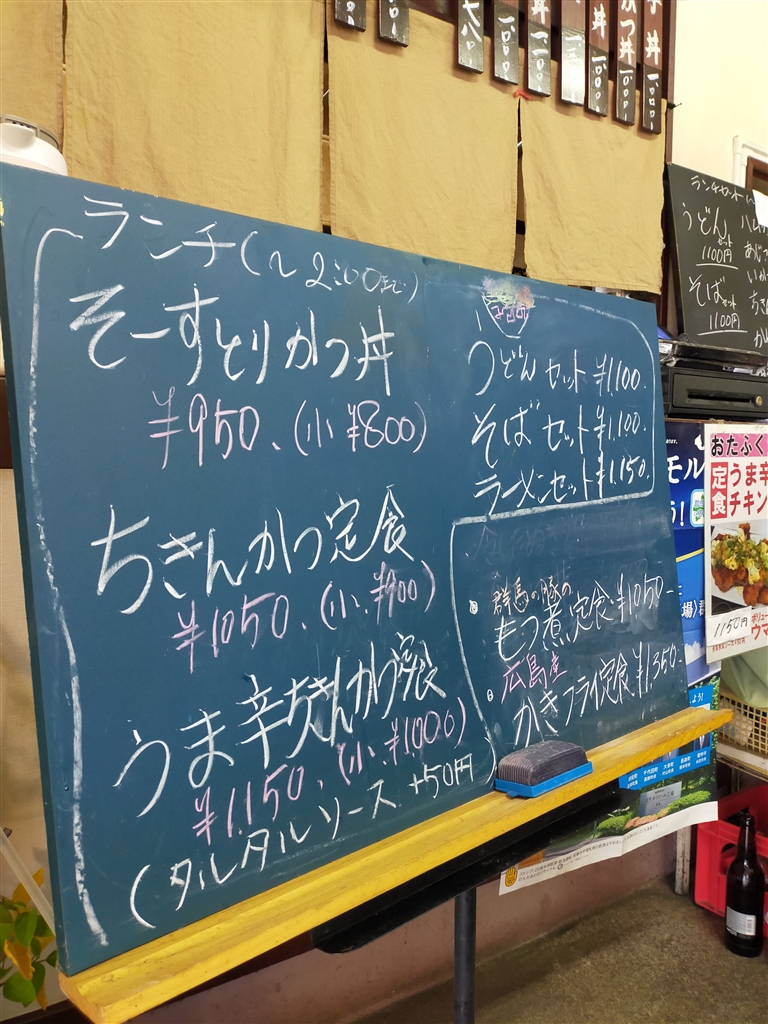 ランチ(~2:00まで)
そーすとりかつ丼
¥950、(小 ¥800)
ちきんかつ定食
¥1050、(小、¥900)
うま辛ちきんかつ定食
¥1,150、(小、¥1000)
(タルタルソース +50円
うどんセット ¥1,100.
そばセット ¥1,100.
ラーメンセット ¥1,150.
群馬の豚の
もつ煮定食 ¥1050-
広島産
かきフライ定食 ¥1,350.
丼
かつ丼
ランチセット
うどん
セット
1100円
そばセット
1100円
おたふく
定食
うま辛
チキン
1150円
モル